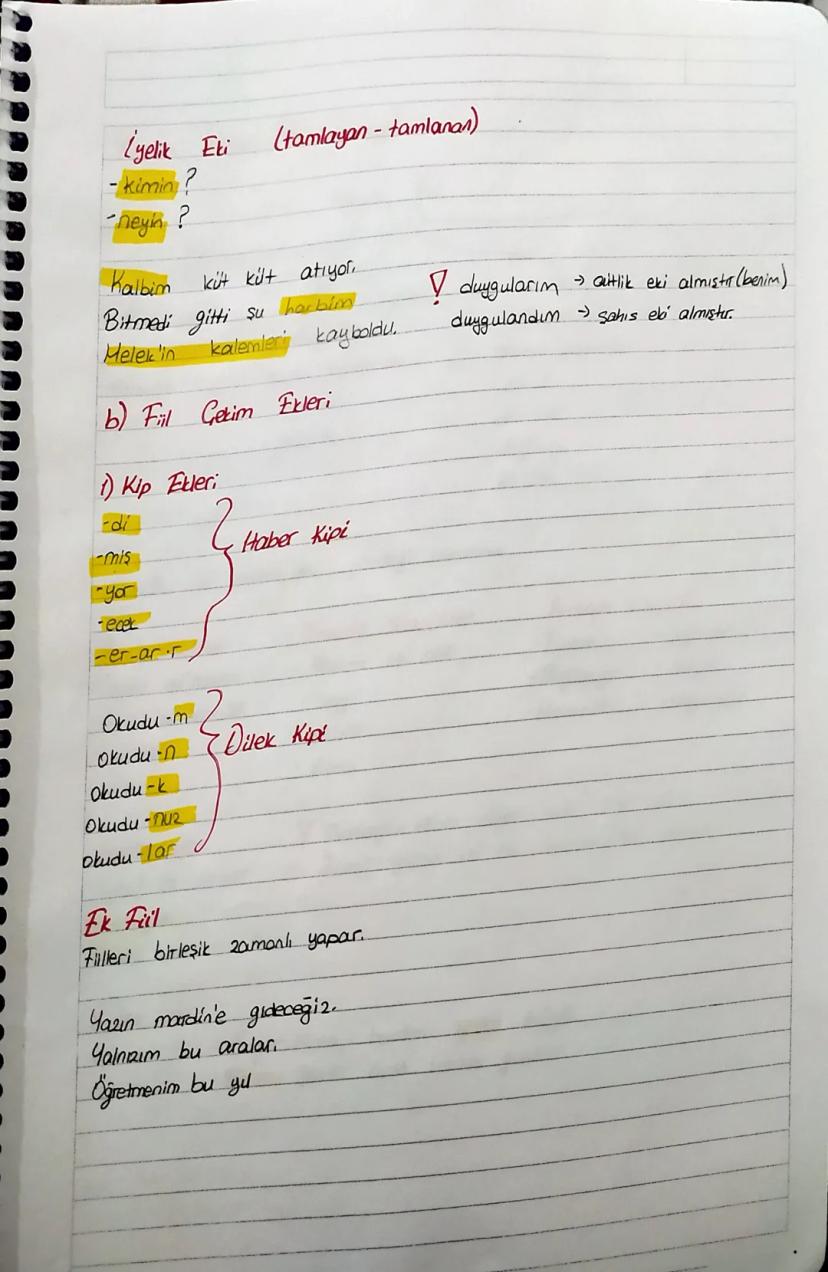 İyelik Eki (tamlayan - tamlanan)
- kimin ?
- neyin ?
Kalbim küt küt atıyor.
Bitmedi gitti şu harbim
Melek'in kalemleri kayboldu.
! duygularım → aitlik eki almıştır (benim)
duygulandım → şahıs eki almıştır.
b) Fiil Çekim Ekleri
i) Kip Ekleri
-di
-miş
-yor
-ecek
-er-ar-r
Haber Kipi
Okudu -m
okudu -n
okudu -k
okudu -nuz
okudu -lar
Dilek Kipi
Ek Fiil
Fiilleri birleşik zamanlı yapar.
Yazın mardin'e gideceğiz.
Yalnızım bu aralar.
Öğretmenim bu yıl